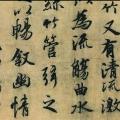 竹又有清流激
為流觴曲水
絲竹管弦之
以暢叙幽情